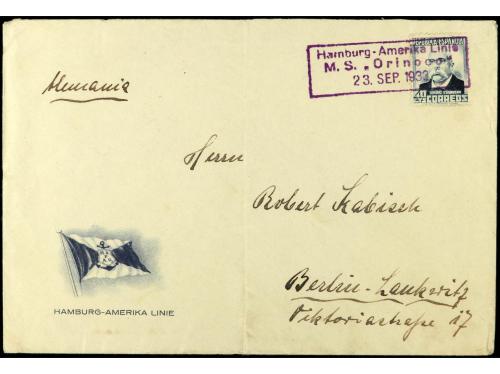 Hamburg-Amerika Linie
M. S. "Orinoco"
23. SEP. 1933
REPUBLICA ESPAÑOLA
CORREOS
Alemania
Herrn
Robert Kabisch
Berlin-Lankwitz
Viktoriastraße 17
HAMBURG-AMERIKA LINIE